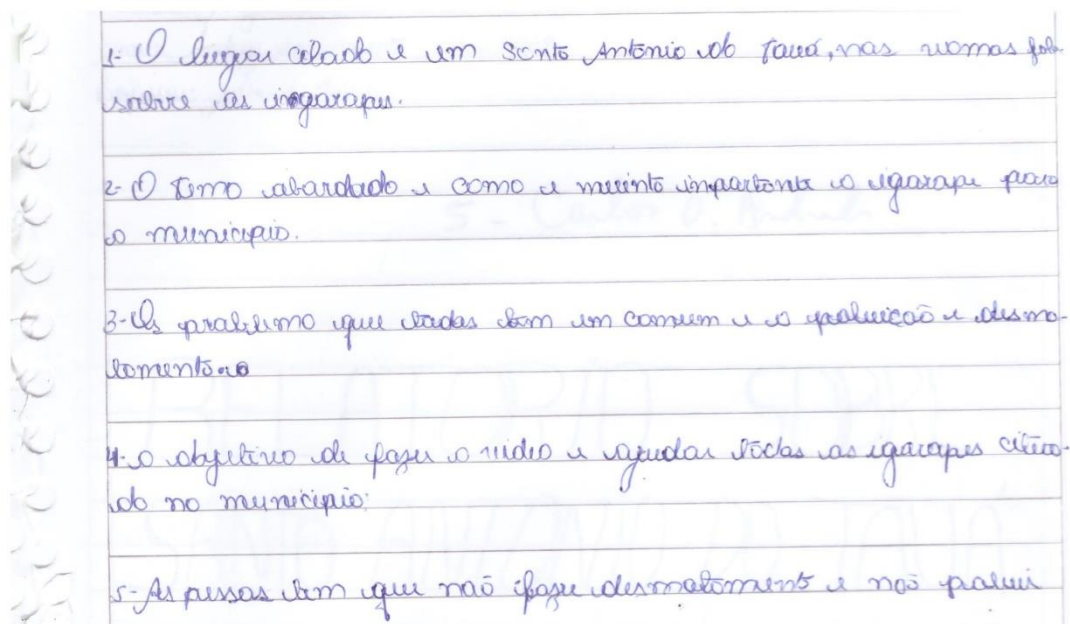 1- O lugar citado e em Santo Antonio do Tauá, nas ramas fala
sobre os ingarapes.
2- O tema abardado e como e muinto importante o igarape para
o municipio.
3- Os problemo que todos tem em comum e a poluicão e desma-
tamento
4- o objetivo de faze o video e ajudar todos os igarapes cita-
do no municipio.
5- As pessoas tem que não faze desmatament e não polui